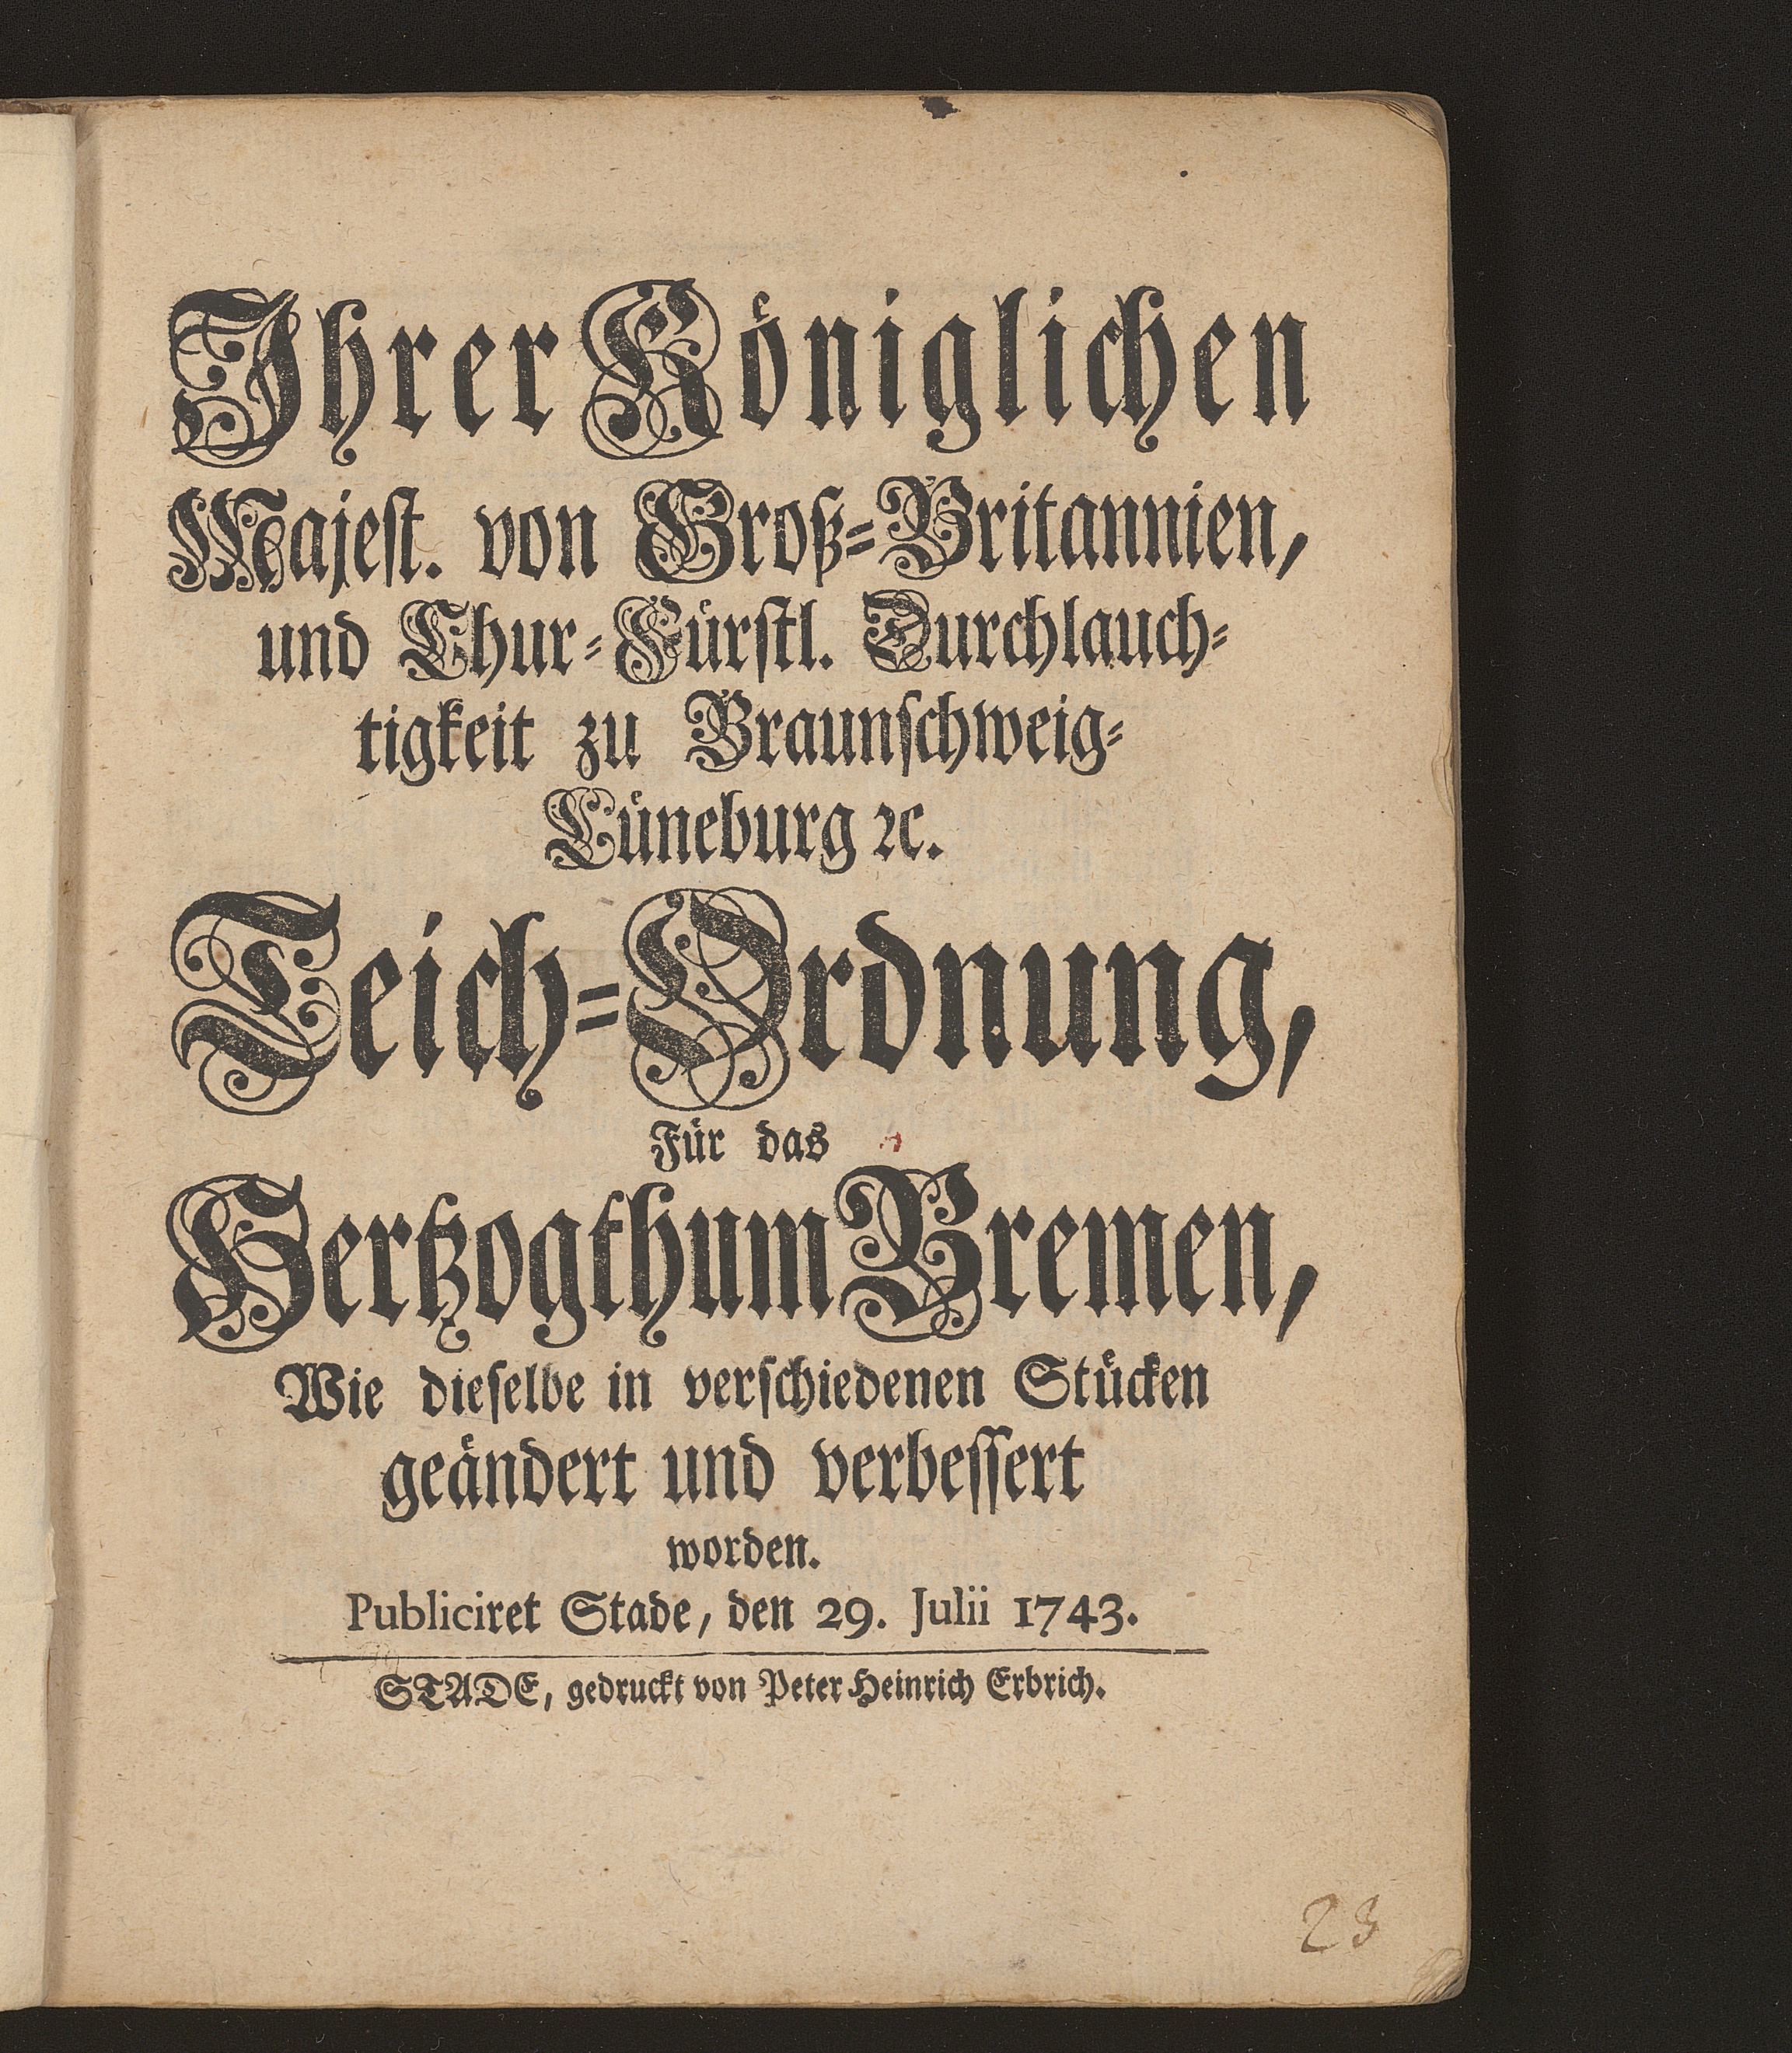 Ihrer Königlichen
Majest. von Groß-Britannien,
und Chur-Fürstl. Durchlauch-
tigkeit zu Braunschweig-
Lüneburg ꝛc.
Teich-Ordnung,
Für das
Hertzogthum Bremen,
Wie dieselbe in verschiedenen Stücken
geändert und verbessert
worden.
Publiciret Stade, den 29. Julii 1743.
STADE, gedruckt von Peter Heinrich Erbrich.
23